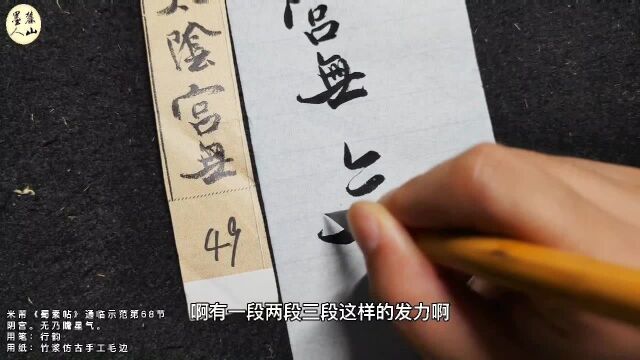 麓山
墨人
陰宮無
49
宮無
啊有一段两段三段这样的发力啊
米芾《蜀素帖》通临示范第68节
阴宫。无乃瞻星气。
用笔：行韵
用纸：竹浆仿古手工毛边